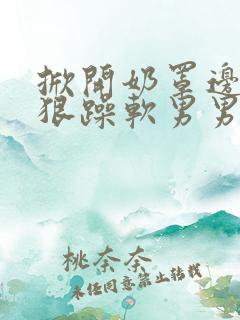 掀開奶罩邊
狠躁軟男男
桃奈奈
未經同意禁止轉載